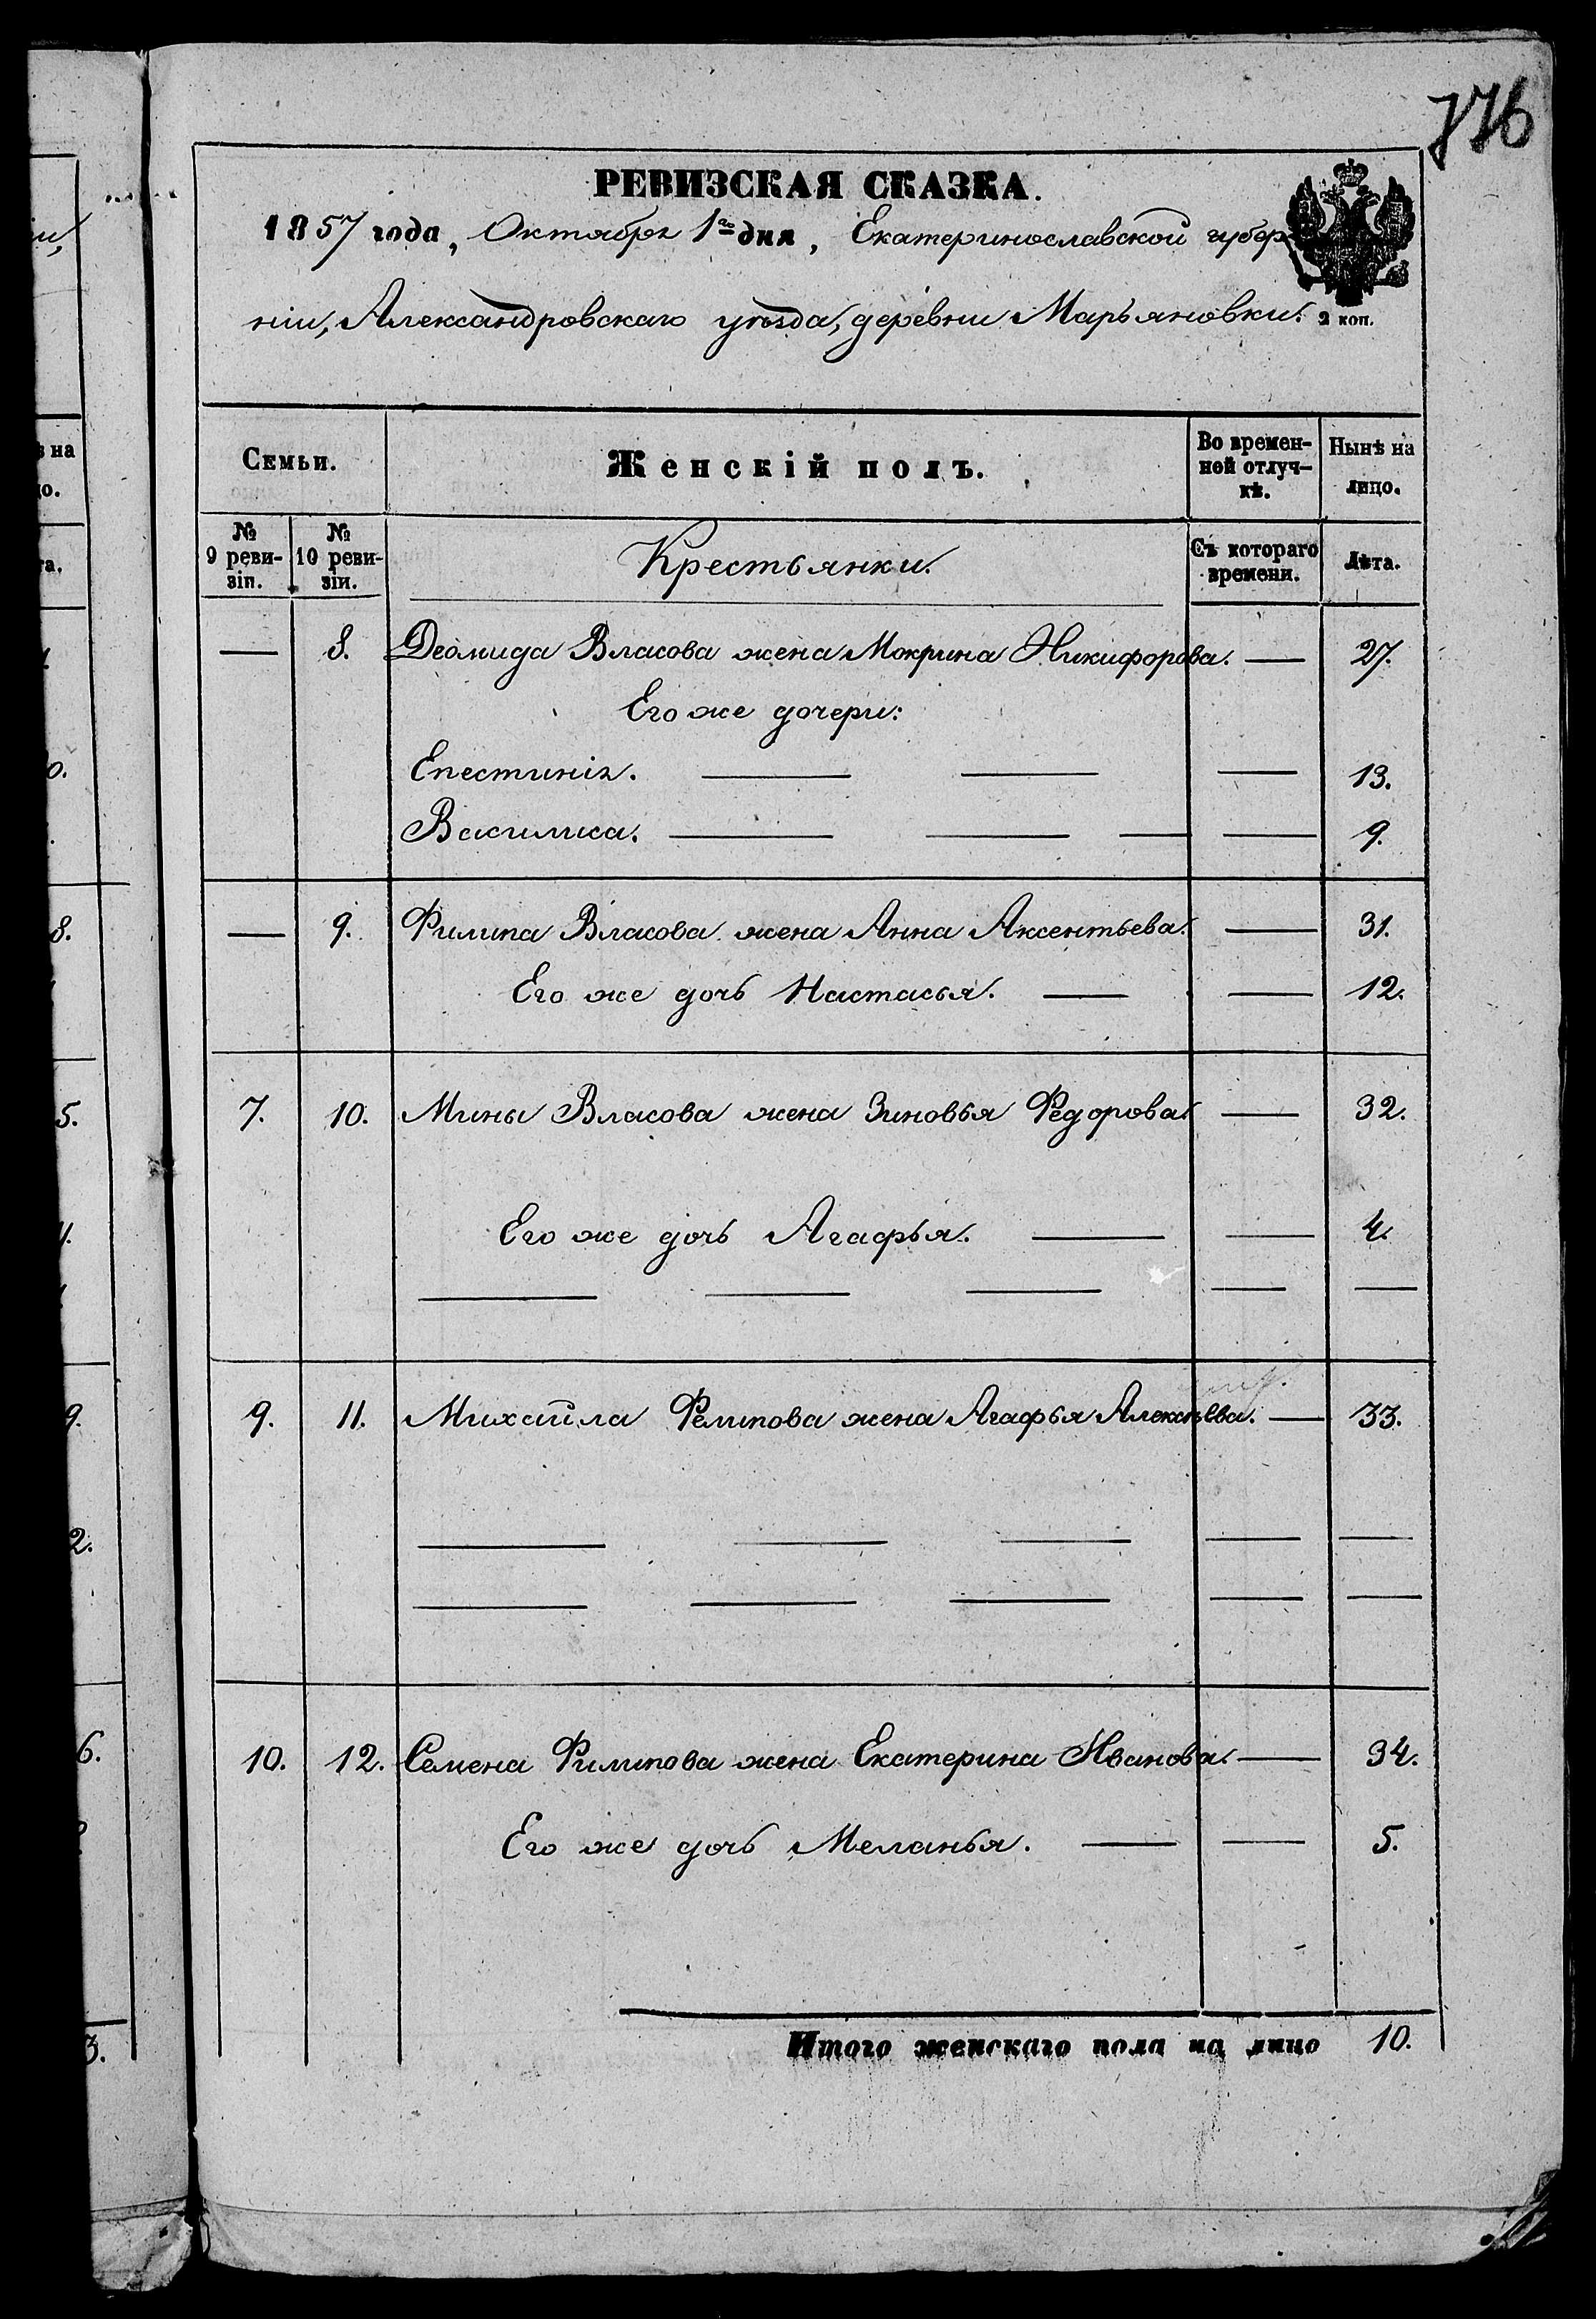 776
РЕВИЗСКАЯ СКАЗКА.
1857 года, Октября 1го дня, Екатеринославской губер
ніи, Александровскаго уѣзда, деревни Марьяновки. 2 коп.
Семьи. Женскій полъ. Во времен-ной отлуч-кѣ. Нынѣ на лицо.
№ 9 реви-зіи. № 10 реви-зіи. Крестьянки. Съ котораго времени. Лѣта.
— 8. Деомида Власова жена Мокрина Никифорова. — 27.
Его же дочери:
Епестинія. — — — 13.
Василиса. — — — — 9.
— 9. Филипа Власова жена Анна Аксентьева. — 31.
Его же дочь Настасья. — — 12.
7. 10. Мины Власова жена Зиновья Федорова. — 32.
Его же дочь Агафья. — — 4.
— — — — —
9. 11. Михайла Фелипова жена Агафья Алексѣева. — 33.
— — — — —
— — — — —
10. 12. Семена Филипова жена Екатерина Иванова. — 34.
Его же дочь Меланья. — — 5.
Итого женскаго пола на лицо 10.